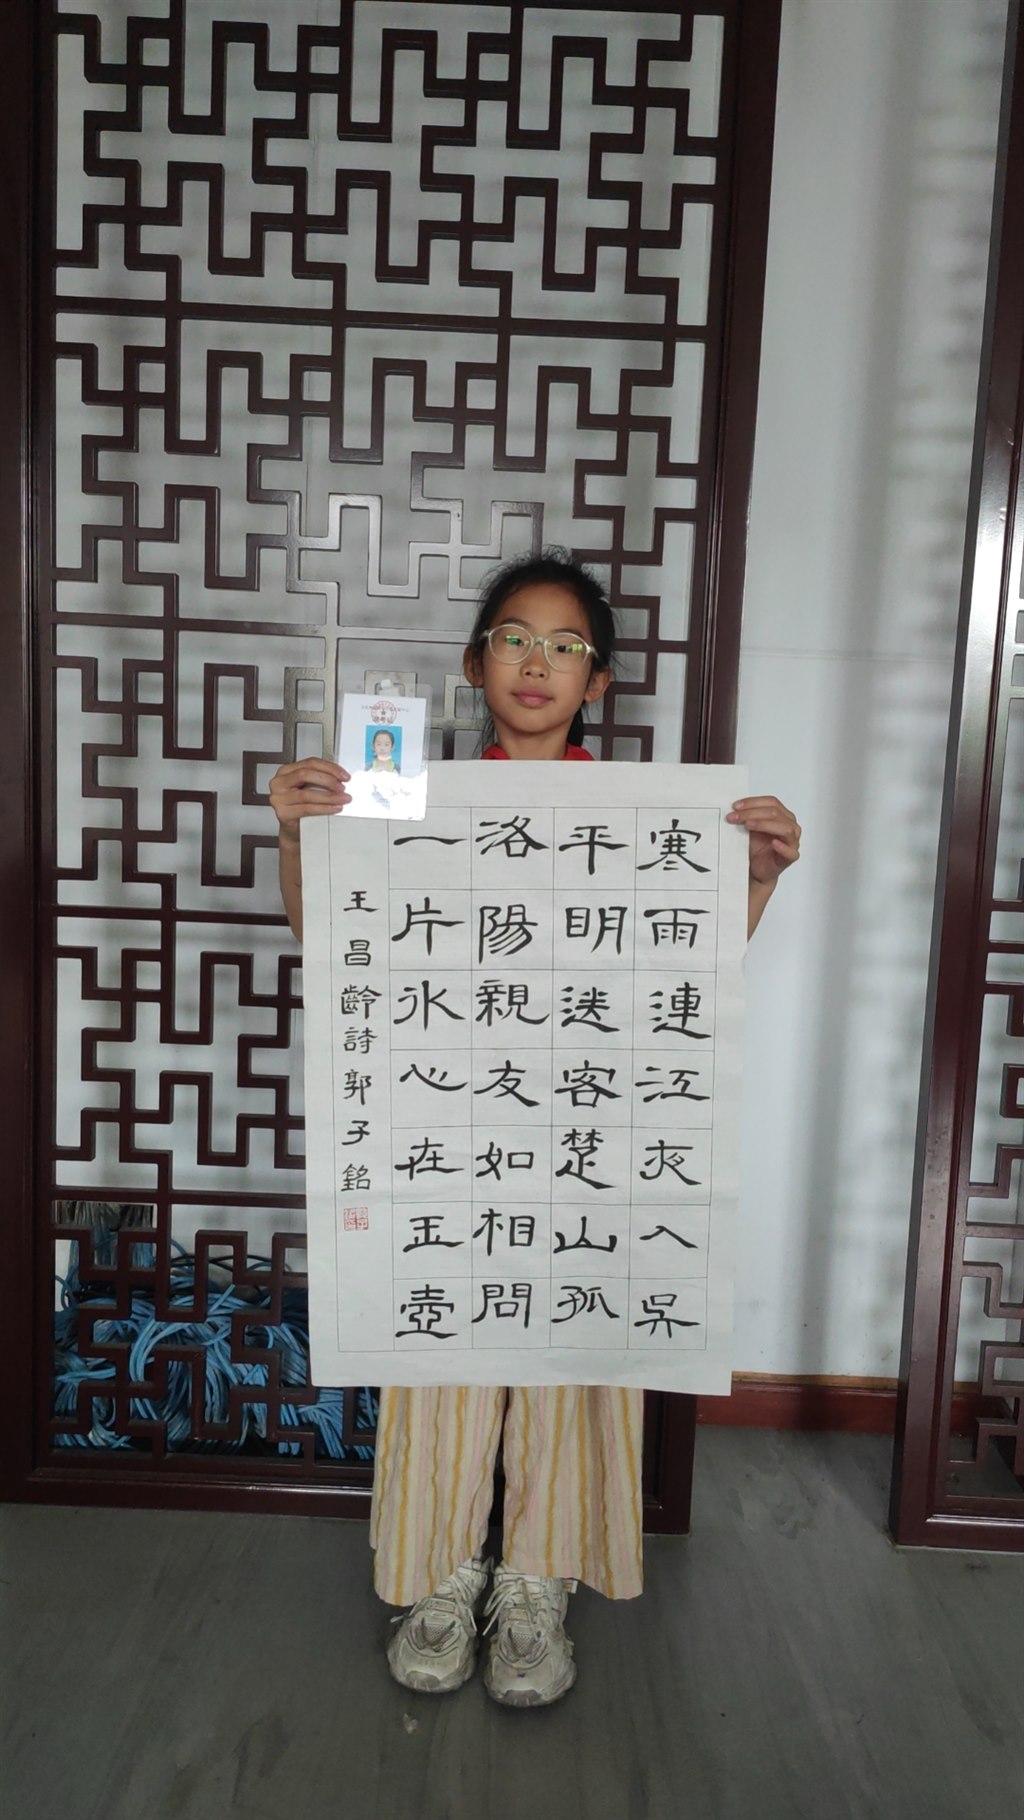 寒雨連江夜入吳
平明送客楚山孤
洛陽親友如相問
一片冰心在玉壺
王昌齡詩郭子銘
准考证